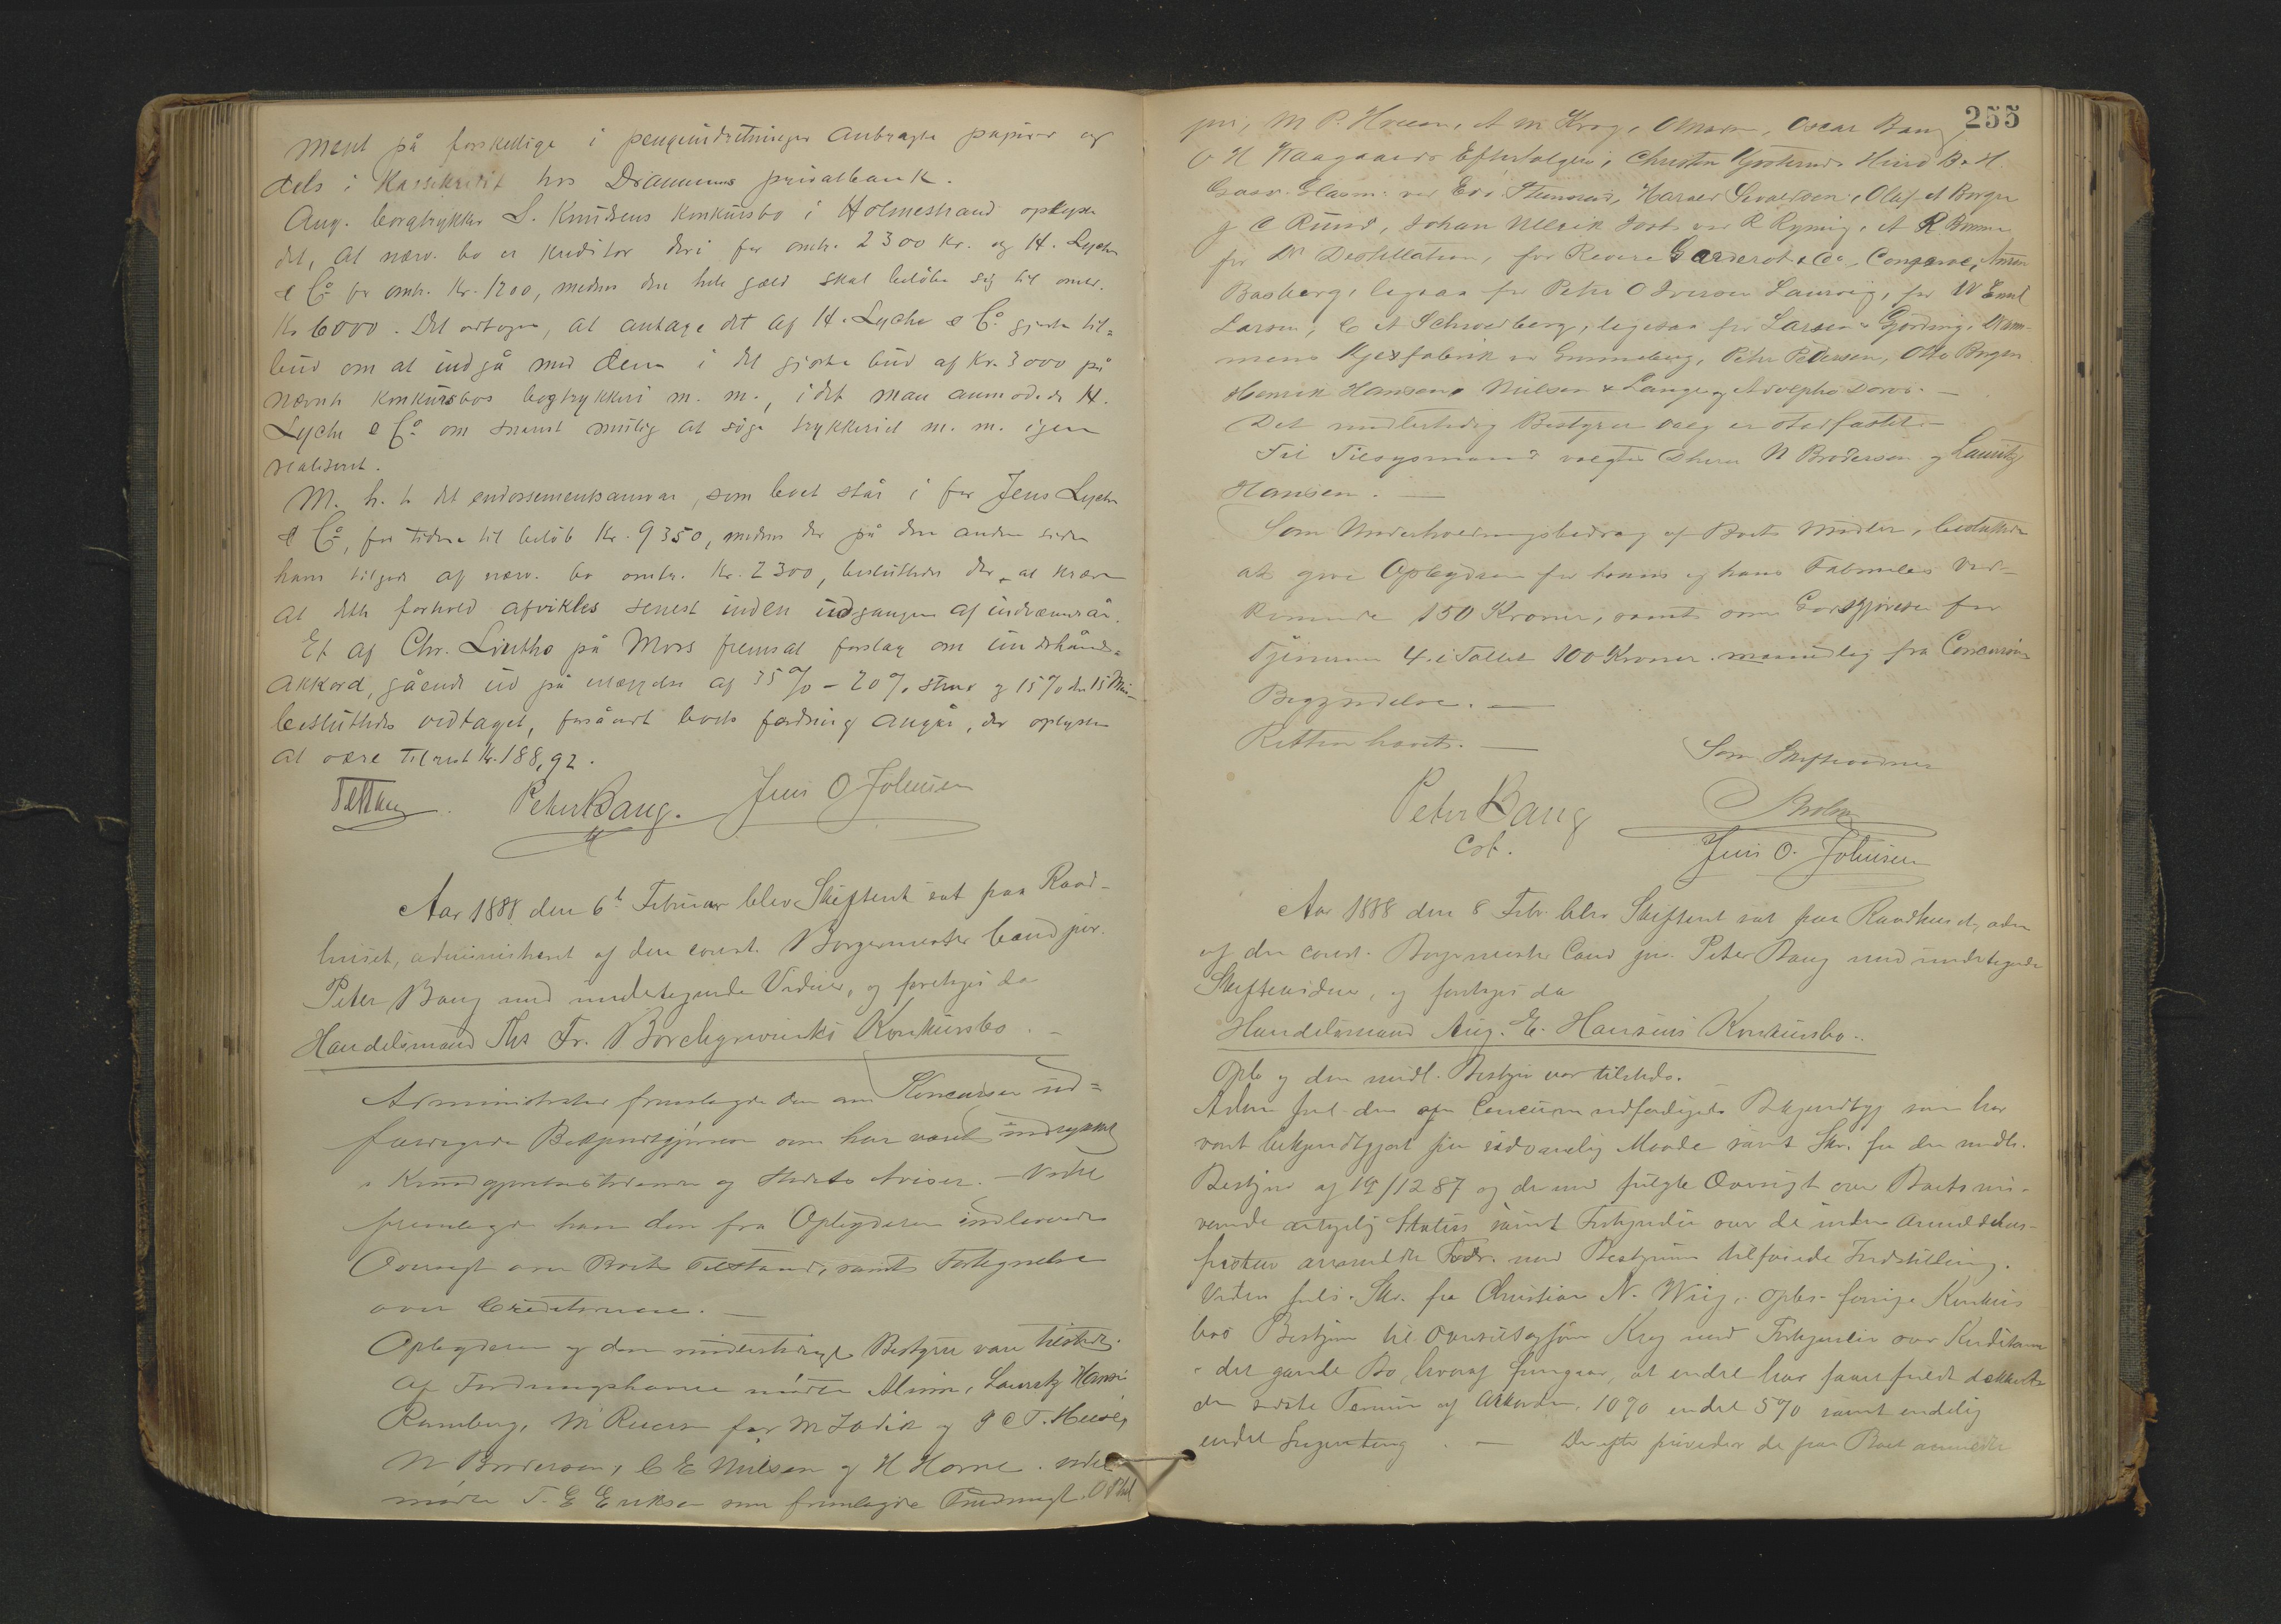 ment på forskellige i pengeindretninger anbragte papirer og
dels i Kassekredit hos Drammens privatbank.
Ang. bogtrykker S. Knudsens konkursbo i Holmestrand oplyste
det, at nærv. bo er kreditor deri for omtr. 2300 kr. og H. Lyche
& Co for omtr. kr. 1200, medens den hele gæld skal beløbe sig til omtr.
kr 6000. Det vedtoges, at antage det af H. Lyche & Co gjorte til-
bud om at indgå med dem i det gjorte bud af kr. 3000 på
nævnte konkursbos bogtrykkeri m. m., idet man anmodede H.
Lyche & Co om snarest mulig at söge trykkeriet m. m. igjen
realiseret.
M. h. t. det endossementsansvar, som boet står i for Jens Lyche
& Co, for tiden til beløb kr. 9350, medens der på den anden side
haves tilgode af nærv. bo omtr. kr. 2300, besluttedes der at kræve
at dette forhold afvikles senest inden udgangen af indeværende år.
Et af Chr. Lintho på Mors fremsat forslag om underhånds-
akkord, gående ud på erlæggelse af 35 % – 20 % strax og 15 % den 15 Mai
besluttedes vedtaget, forsåvidt boets fordring angår, der oplystes
at være tilrest kr. 188,92.
Peter Bang. Jens O Johnsen
Aar 1888 den 6t Februar blev Skifteret sat paa Raad-
huset, administreret af den const. Borgermester Cand jur.
Peter Bang med undertegnede Vidner, og foretoges da
Handelsmand Ths Fr. Borchgrevinks Konkursbo. –
Administrator fremlagde den om Konkursen ud=
færdigede Bekjendtgjørelse som har været indrykket
i Kundgjørelsestidende og Stedets Aviser. – Videre
fremlagde han den fra Opbyderen indleverede
Oversigt over Boets Tilstand, samt Fortegnelse
over Creditorerne. –
Opbyderen og den midlertidige Bestyrer vare tilstede.
Af Fordringshavere mødte Alum, Lauritz Hansen
Ramberg, for M Zadik og
N Brodersen, C E Nielsen og H Horne. videre
mødte T. E Eriksen som fremlagde Fuldmagt.
255
jun, M P. Kreen, A M Krog, Oscar Bang
O H Haagaards Efterfølger,
Johan Ullrik
for Dr Destillation, for
Basberg, ligesaa for Peter O Iversen Laurvig, for W Emil
Larsen, C A Schwedberg, ligesaa for Larsen & Gjording,
mens Kjexfabrik ved Gunneberg, Peter Pedersen, Otto
Henrik Hansen, Nielsen & Lange og Adolphs
Det midlertidig Bestyrer valg er stadfæstet. –
Til Tilsynsmænd valgtes Dhrr N Brodersen og Lauritz
Hansen. –
Som Underholdningsbidrag af Boets Midler, besluttedes
at give Opbyderen for hans og hans Families Ved-
kommende 150 Kroner, samt som Godtgjørelse for
Tjenerne 4 i Tallet 100 Kroner maanedlig fra Concursens
Begyndelse. –
Retten hævet. –
Som Skiftevidner
Peter Bang
cst.
Jens O. Johnsen
Aar 1888 den 8 Febr. blev Skifteret sat paa Raadhuset, adm
af den const. Borgermester Cand jur. Peter Bang med undertegnede
Skiftevidner, og foretoges da
Handelsmand Aug. E. Hansens Konkursbo. –
Opb og den midl. Bestyrer var tilstede.
Adm frel. den om Concursen udfærdigede Bekjendtgj som har
været bekjendtgjort paa sædvanlig Maade samt Skr. fra den midle.
Bestyrer af 19/12 87 og dermed fulgte Oversigt over Boets nu-
værende Status samt Fortegnelse over de inden Anmeldelses-
fristen anmeldte Fodr. med Bestyrerens tilføiede Indstilling.
Viden frels. Skr. fra Christian N. Wiig, opbs. forrige Konkurs
bos Bestyrer til Overretssagfører Krog med Fortegnelse over Kreditorerne
i det gamle Bo, hvoraf fremgaar, at endel har faaet fuldt dekket
den sidste Termin af Akkorden, 10 % endel 5 % samt endelig
endel Ingenting. – De efter prøvedes de paa Boet anmeldte